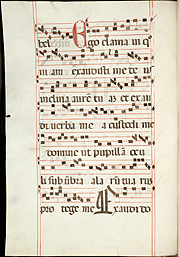 Ego clama ui q
ni am exaudisti me de us
inclina aurē tu as et exau
di uerba me a custodi me
domine ut pupillā ocu
li sub ūbra ala rū tua rū
pro tege me Exaudi do